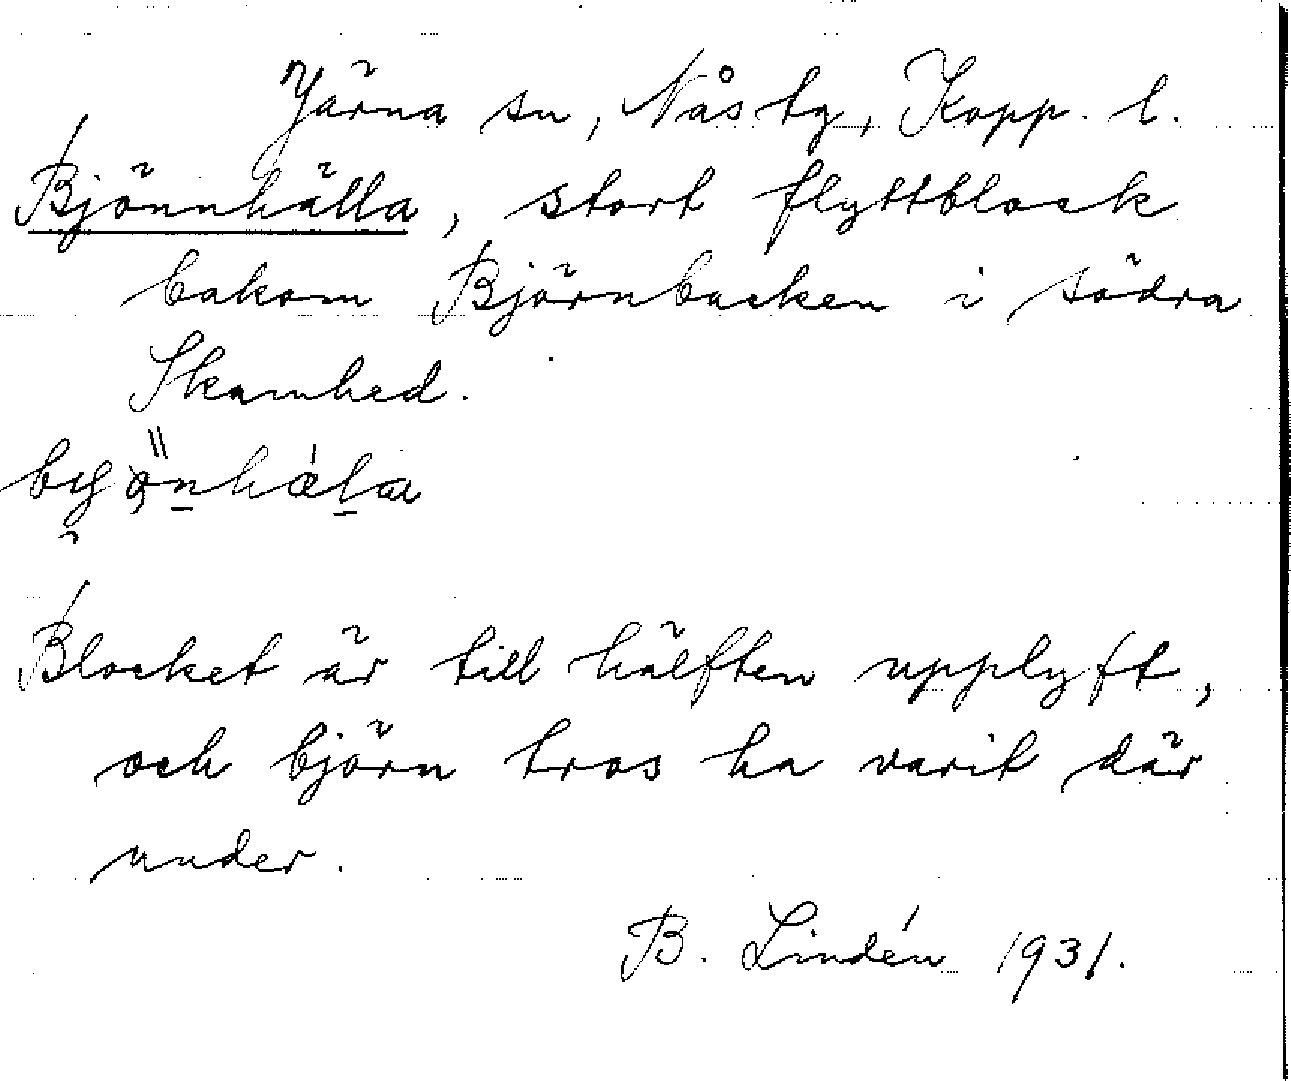 Järna sn, Nås tg, Kopp. l.
Bjönnhälla, stort flyttblock
bakom Björnbacken i södra
Skamhed.
Blocket är till hälften upplyft,
och björn tros ha varit där
under.
B. Lindén 1931.